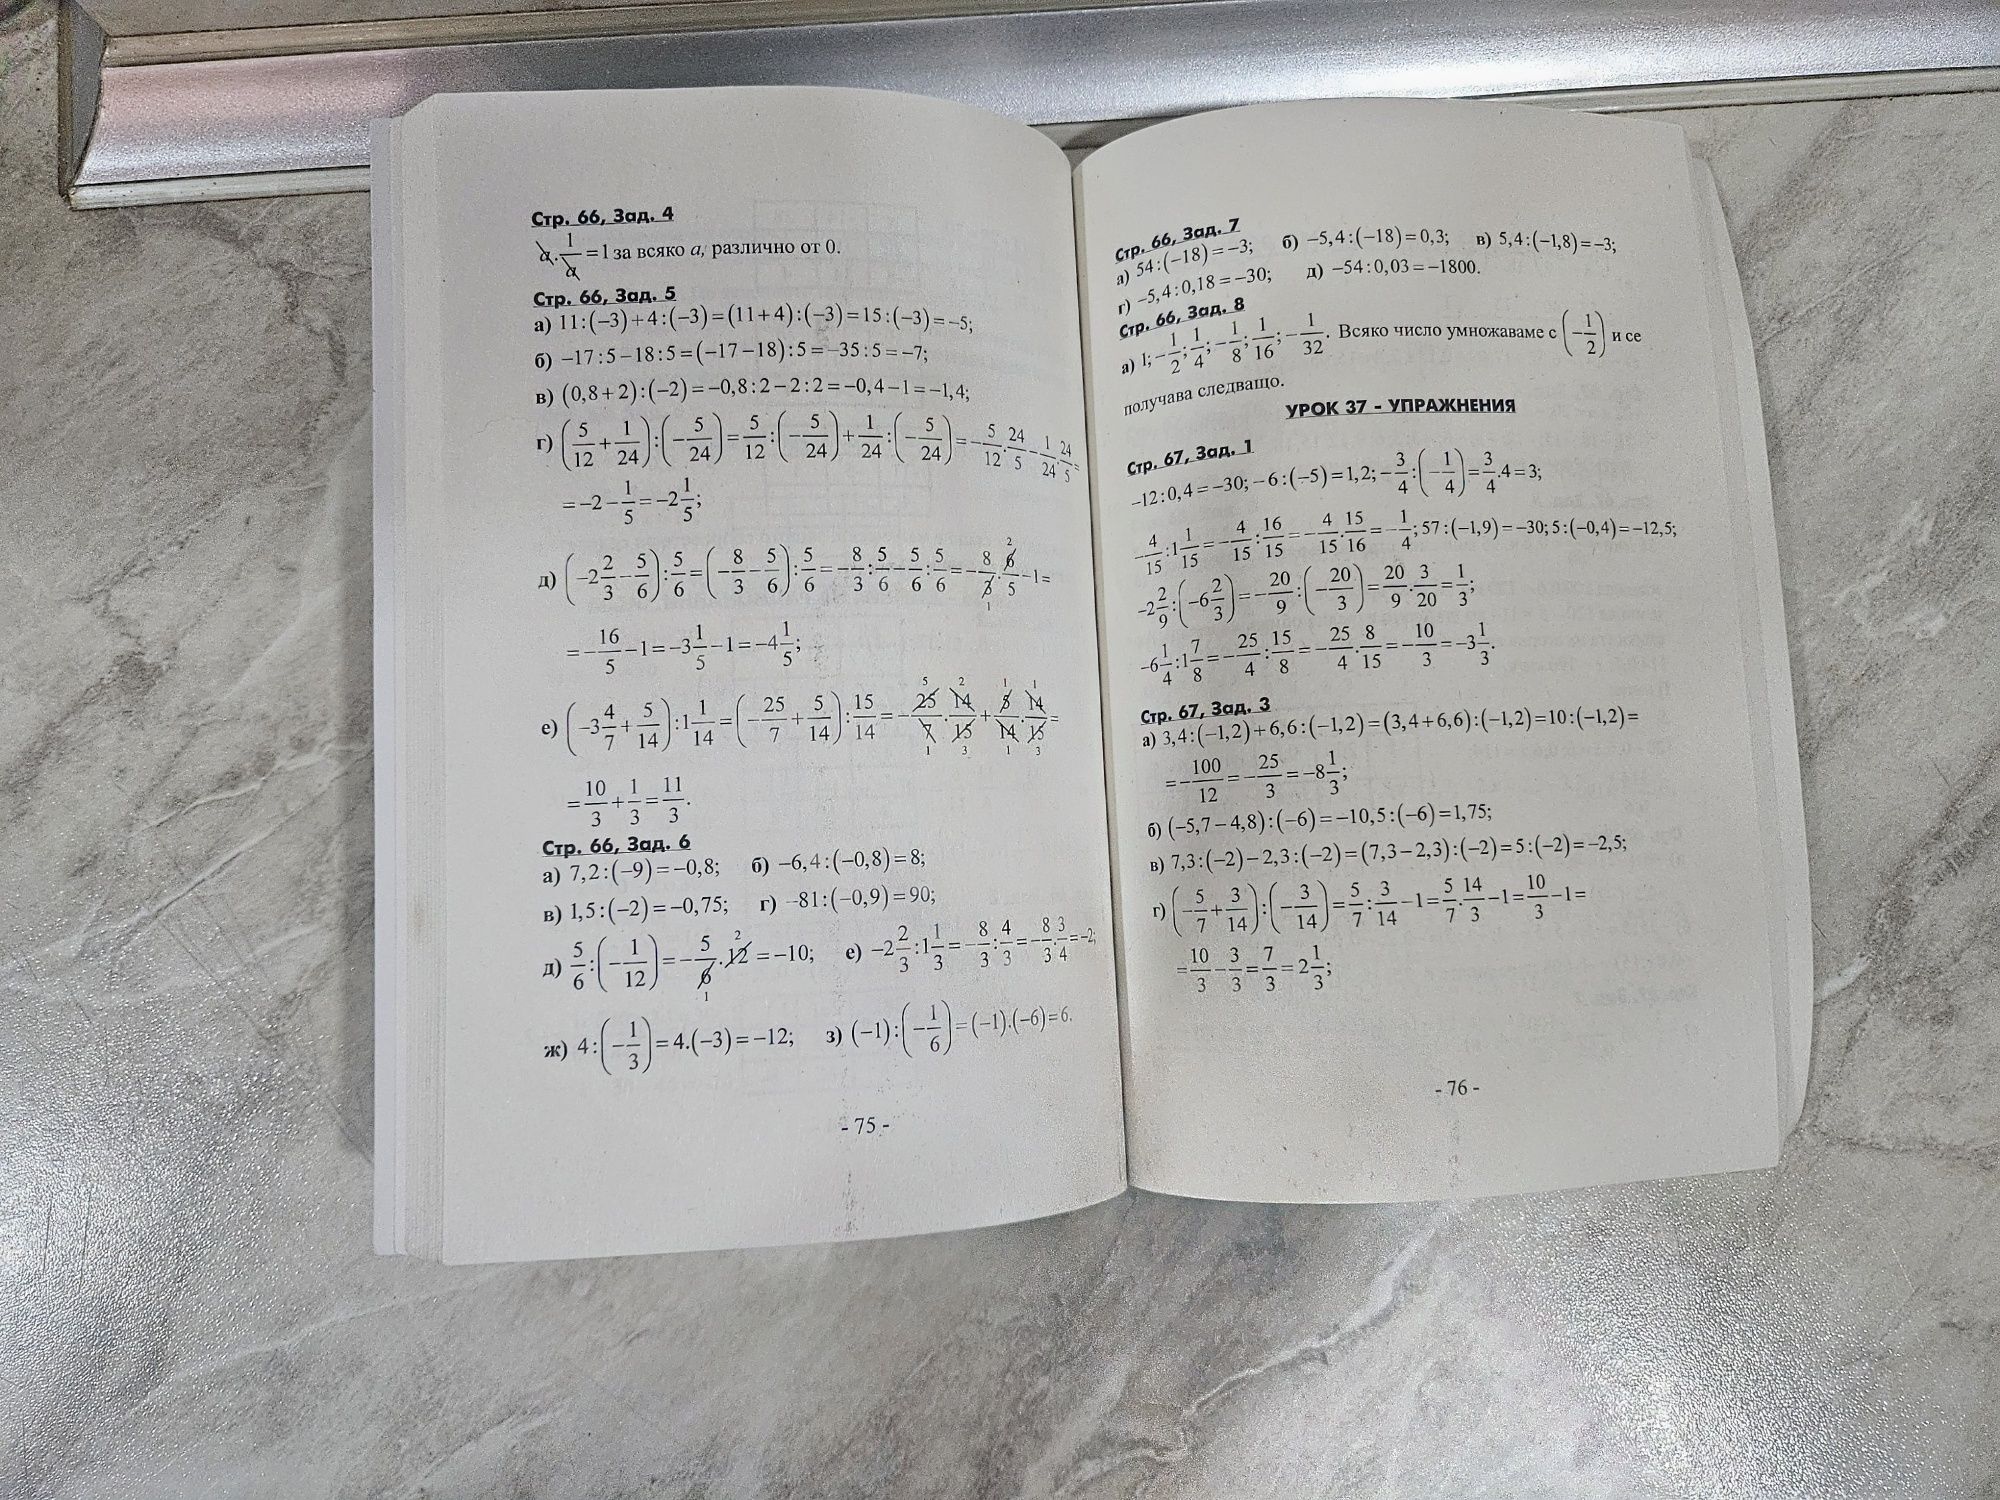 Стр. 66, Зад. 4
a · 1/a = 1 за всяко a, различно от 0.
Стр. 66, Зад. 5
а) 11:(−3)+4:(−3)=(11+4):(−3)=15:(−3)=−5;
б) −17:5−18:5=(−17−18):5=−35:5=−7;
в) (0,8+2):(−2)=−0,8:2−2:2=−0,4−1=−1,4;
г) (5/12+1/24):(−5/24)=5/12:(−5/24)+1/24:(−5/24)=−5/12.24/5−1/24.24/5=
=−2−1/5=−2 1/5;
д) (−2 2/3−5/6):5/6=(−8/3−5/6):5/6=−8/3:5/6−5/6:5/6=−8/3.6/5−1= 2 1
=−16/5−1=−3 1/5−1=−4 1/5;
е) (−3 4/7+5/14):1 1/14=(−25/7+5/14):15/14=−25/7.14/15+5/14.14/15= 5 2 1 1 1 3 1 3
=10/3+1/3=11/3.
Стр. 66, Зад. 6
а) 7,2:(−9)=−0,8; б) −6,4:(−0,8)=8;
в) 1,5:(−2)=−0,75; г) −81:(−0,9)=90;
д) 5/6:(−1/12)=−5/6.12=−10; 2 1 е) −2 2/3:1 1/3=−8/3:4/3=−8/3.3/4=−2;
ж) 4:(−1/3)=4.(−3)=−12; з) (−1):(−1/6)=(−1).(−6)=6.
- 75 -
Стр. 66, Зад. 7
а) 54:(−18)=−3; б) −5,4:(−18)=0,3; в) 5,4:(−1,8)=−3;
г) −5,4:0,18=−30; д) −54:0,03=−1800.
Стр. 66, Зад. 8
а) 1;−1/2;1/4;−1/8;1/16;−1/32. Всяко число умножаваме с (−1/2) и се
получава следващо.
УРОК 37 - УПРАЖНЕНИЯ
Стр. 67, Зад. 1
−12:0,4=−30;−6:(−5)=1,2;−3/4:(−1/4)=3/4.4=3;
−4/15:1 1/15=−4/15:16/15=−4/15.15/16=−1/4;57:(−1,9)=−30;5:(−0,4)=−12,5;
−2 2/9:(−6 2/3)=−20/9:(−20/3)=20/9.3/20=1/3;
−6 1/4:1 7/8=−25/4:15/8=−25/4.8/15=−10/3=−3 1/3.
Стр. 67, Зад. 3
а) 3,4:(−1,2)+6,6:(−1,2)=(3,4+6,6):(−1,2)=10:(−1,2)=
=−100/12=−25/3=−8 1/3;
б) (−5,7−4,8):(−6)=−10,5:(−6)=1,75;
в) 7,3:(−2)−2,3:(−2)=(7,3−2,3):(−2)=5:(−2)=−2,5;
г) (−5/7+3/14):(−3/14)=5/7:3/14−1=5/7.14/3−1=10/3−1=
=10/3−3/3=7/3=2 1/3;
- 76 -